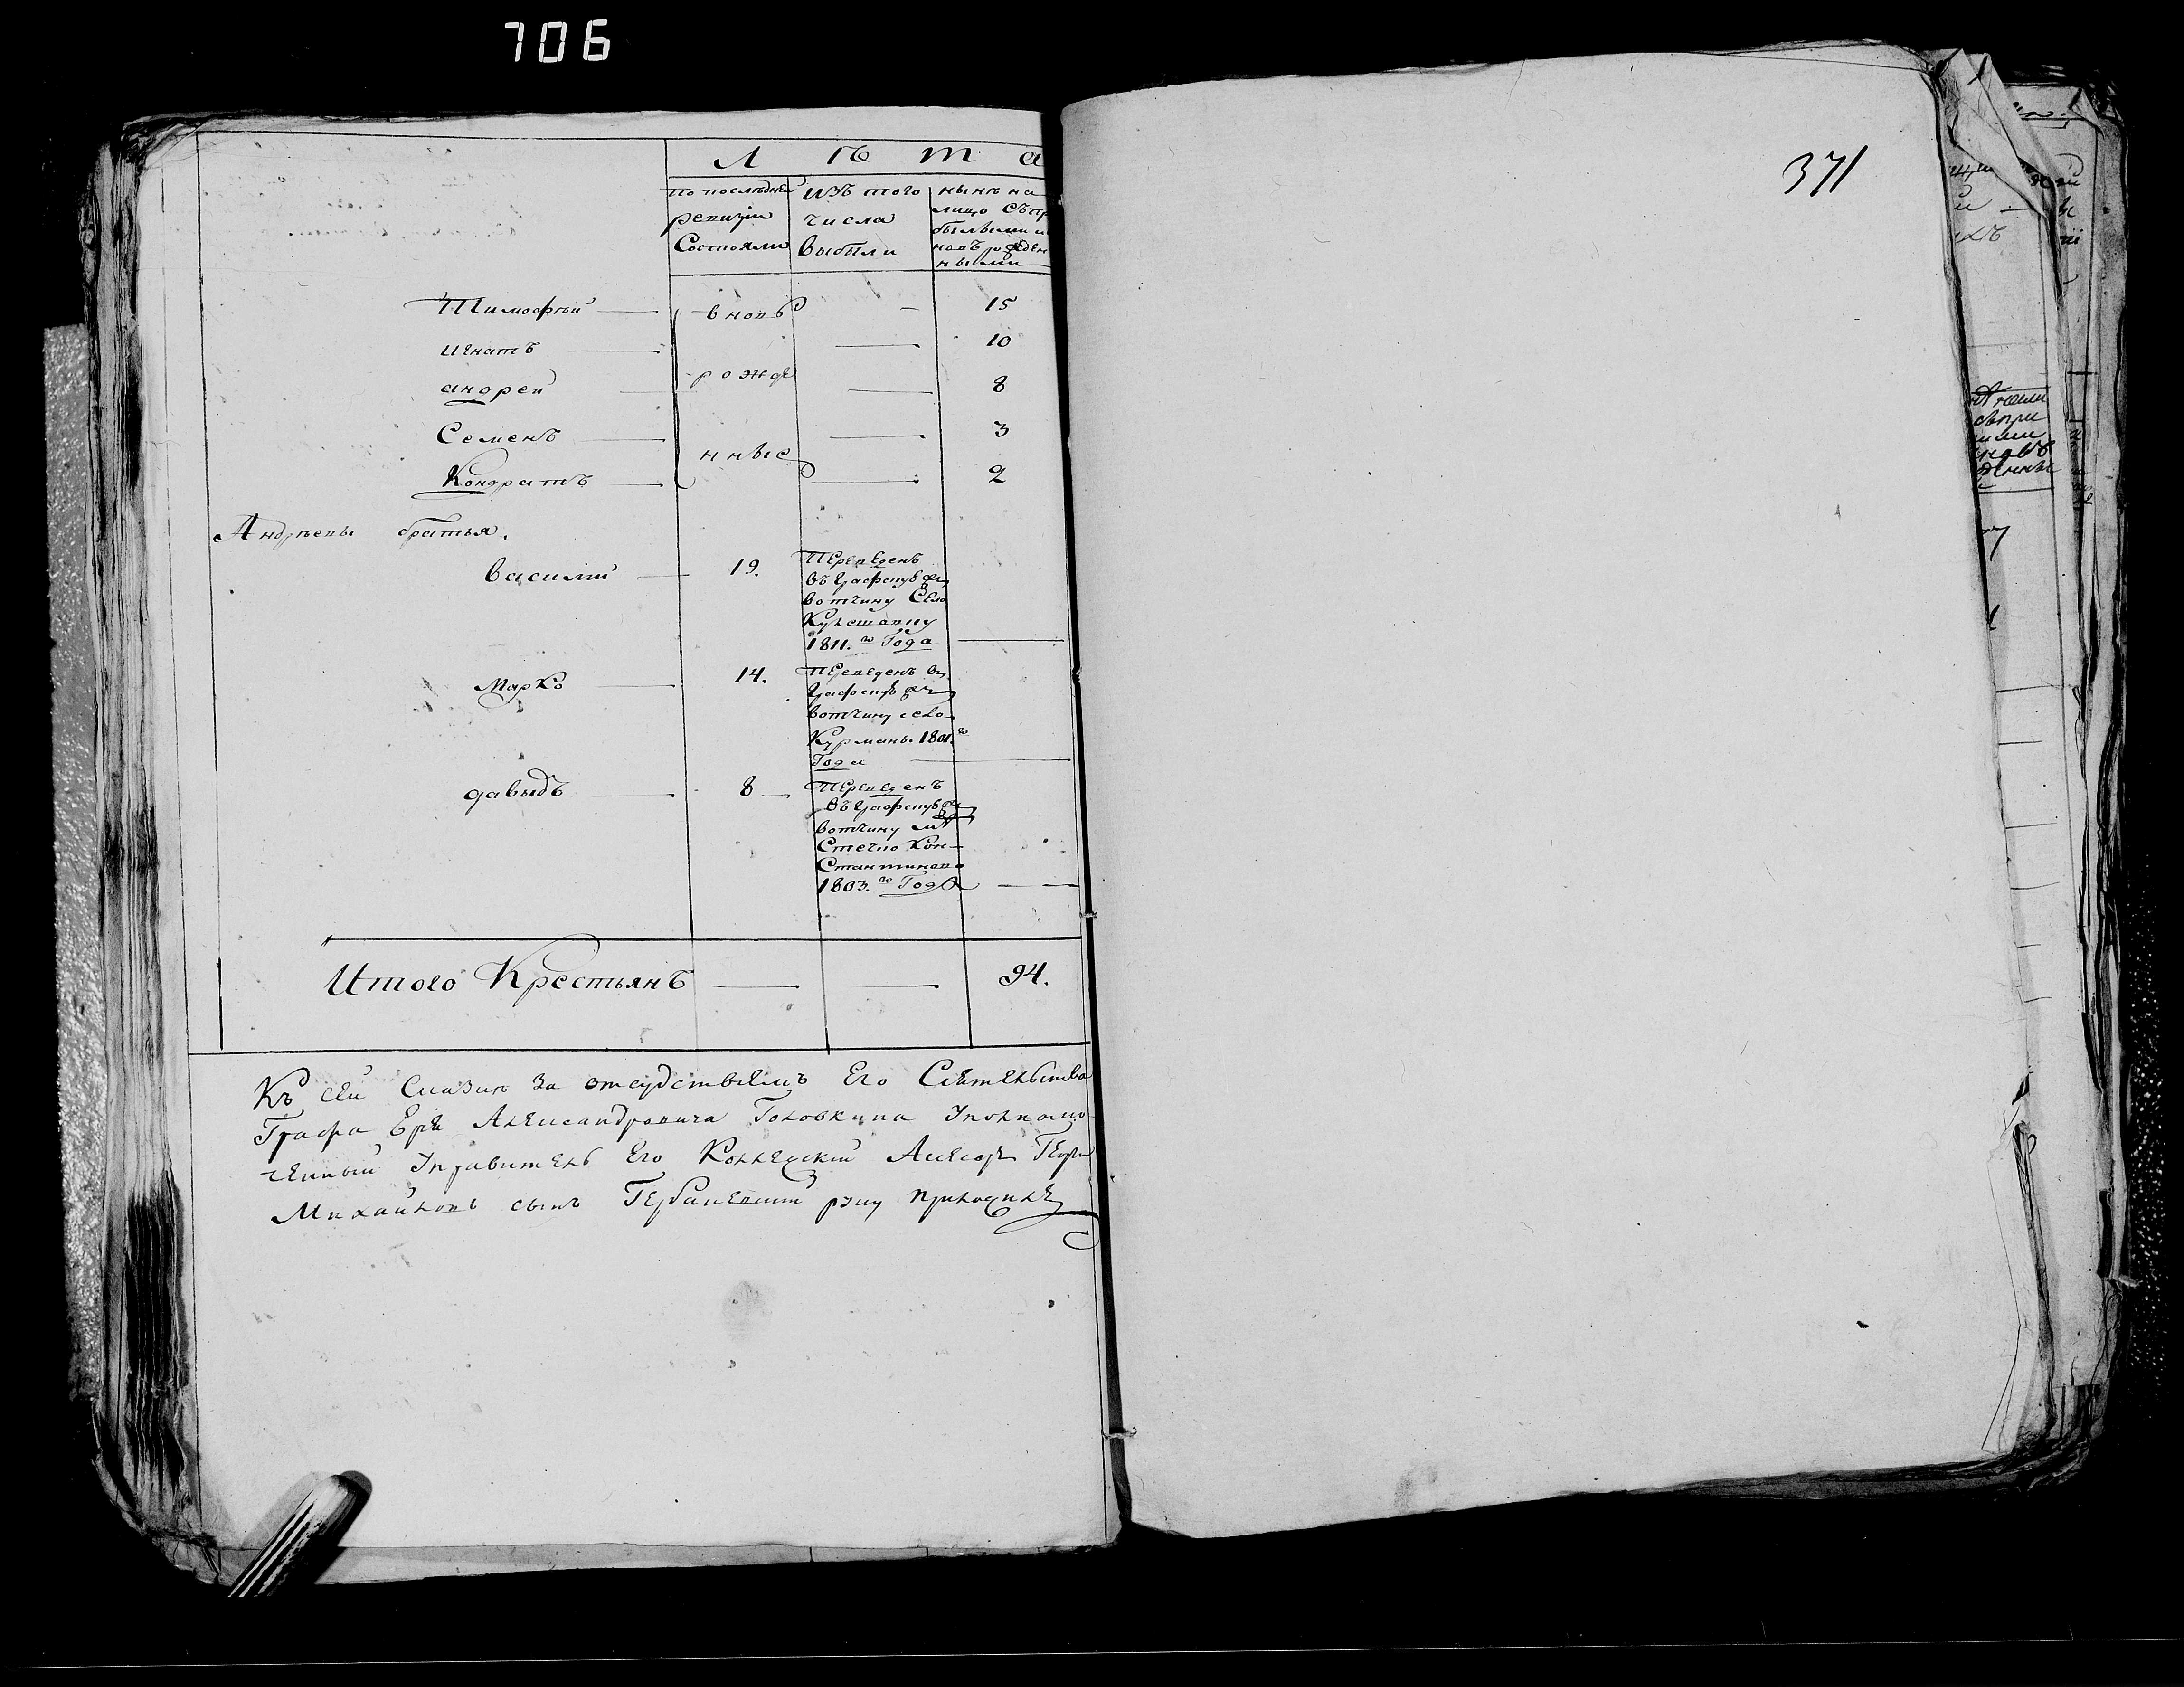 706
371
Л ѣ т а
по послѣдней ревизіи Состояли
изъ того числа выбыли
нынѣ на лицо съпр былыми и новъ рожден ными
Тимофѣй — вновь — 15
игнатъ — 10
андрей — рожде — 8
Семенъ — 3
Кондратъ — нные — 2
Андрѣевы братья.
василий — 19.
Переведенъ
въ Графскую же
вотчину Село
1811.го Года —
Марко — 14.
Переведенъ въ
Графскую же
вотчину село
Курманы 1801.го
Года —
давыдъ — 8 —
Переведенъ
въ Графскую же
вотчину мѣ
стечко Кон-
стантиново
1803.го Года —
Итого Крестьянъ — — 94.
Къ сей Сказки за отсудствіемъ Его Сіятельства
Графа Александровича Головкина Уполномо-
ченный Управитель Его Коллежский Асесоръ
Михайловъ сынъ руку приложилъ